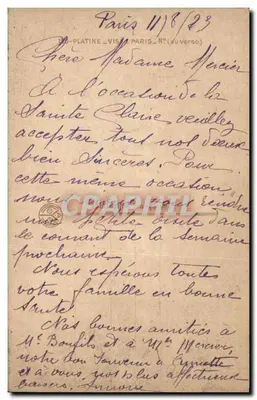 Paris 11/8/23
PLATINE _ VISÉ PARIS _ No (au verso)
Chère Madame Mercier
A l'occasion de la
Sainte Claire veuillez
accepter tout nos vœux
bien sincères. Pour
cette même occasion,
nous rendre
visite dans
le courant de la semaine
prochaine.
Nous espérons toutes
votre famille en bonne
santé.
Nos bonnes amitiés à
Mr Bonfils et à Mme Mercier,
notre bon souvenir à
et à vous, nos plus affectueux
baisers. Simone